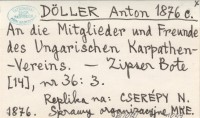 DÖLLER Anton 1876 c.
An die Mitglieder und Freunde
des Ungarischen Karpathen-
-Vereins – Zipser Bote
[14], nr 36: 3.
Replika na: CSERÉPY N.
1876. Sprawy organizacyjne MKE.